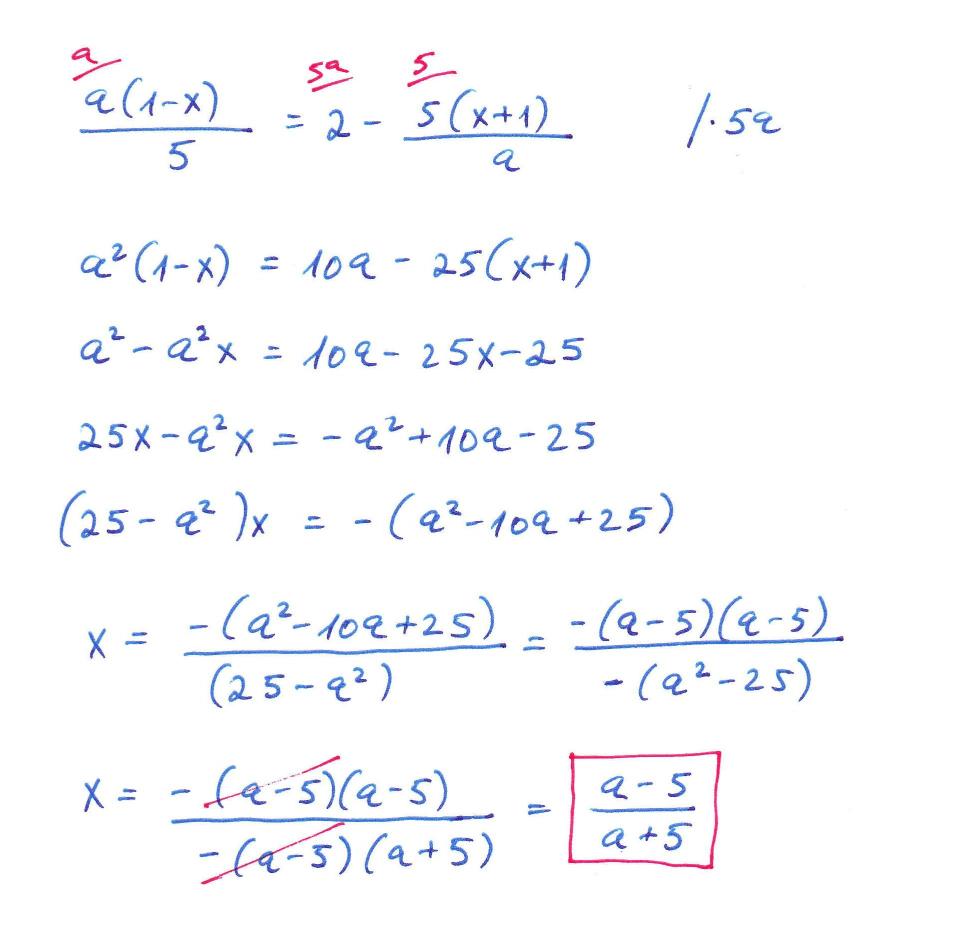 a 5a 5
a(1-x)/5 = 2 - 5(x+1)/a /·5a
a²(1-x) = 10a - 25(x+1)
a² - a²x = 10a - 25x - 25
25x - a²x = -a² + 10a - 25
(25 - a²)x = -(a² - 10a + 25)
x = -(a² - 10a + 25)/(25 - a²) = -(a-5)(a-5)/-(a² - 25)
x = -(a-5)(a-5)/-(a-5)(a+5) = a-5/a+5